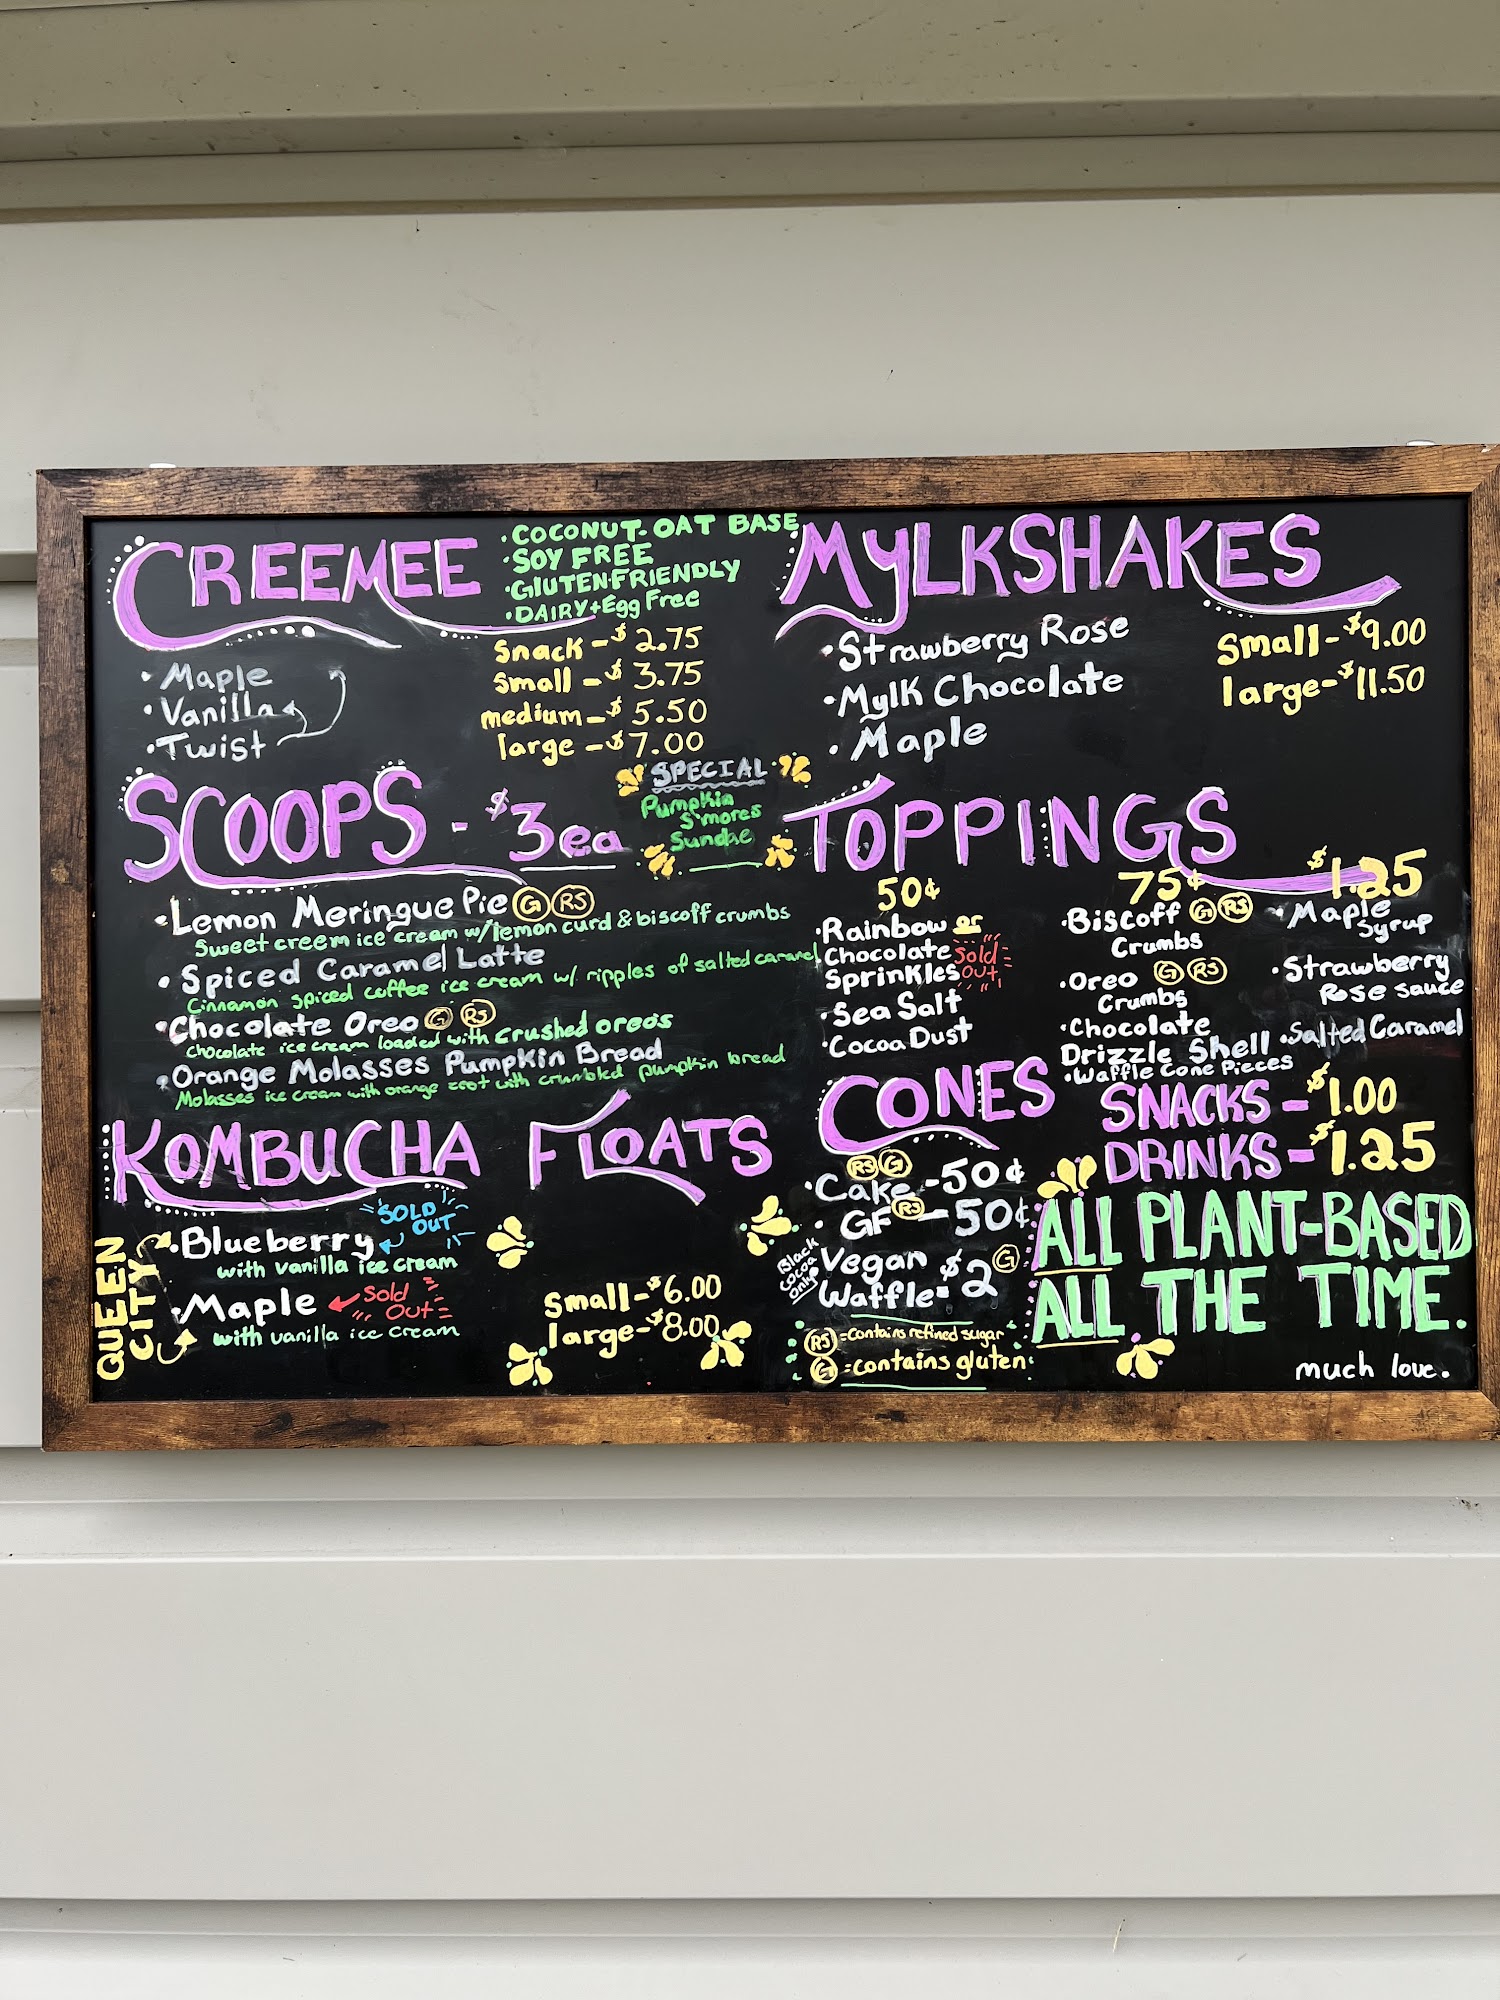 CREEMEE
· COCONUT-OAT BASE
· SOY FREE
· GLUTEN-FRIENDLY
· DAIRY + Egg Free
· Maple
· Vanilla
· Twist
Snack - $2.75
Small - $3.75
medium - $5.50
large - $7.00
SPECIAL
Pumpkin
S'mores
Sundae
SCOOPS - $3ea
· Lemon Meringue Pie G RS
Sweet creem ice cream w/lemon curd & biscoff crumbs
· Spiced Caramel Latte
Cinnamon spiced coffee ice cream w/ ripples of salted caramel
· Chocolate Oreo G RS
Chocolate ice cream loaded with crushed oreos
· Orange Molasses Pumpkin Bread
Molasses ice cream with orange zest with crumbled pumpkin bread
KOMBUCHA FLOATS
QUEEN
CITY
· Blueberry
SOLD
OUT
with vanilla ice cream
· Maple
Sold
Out
with vanilla ice cream
Small - $6.00
large - $8.00
MYLKSHAKES
· Strawberry Rose
· Mylk Chocolate
· Maple
Small - $9.00
large - $11.50
TOPPINGS
50¢
· Rainbow or
Chocolate
Sprinkles
Sold
Out
· Sea Salt
· Cocoa Dust
75¢
· Biscoff G RS
Crumbs
· Oreo G RS
Crumbs
· Chocolate
Drizzle Shell
· Waffle Cone Pieces
$1.25
· Maple
Syrup
· Strawberry
Rose sauce
· Salted Caramel
CONES
RS G
· Cake - 50¢
· GF RS - 50¢
Black
Cocoa
Only
· Vegan
Waffle = $2 G
RS = Contains refined sugar
G = contains gluten
SNACKS - $1.00
DRINKS - $1.25
ALL PLANT-BASED
ALL THE TIME.
much love.